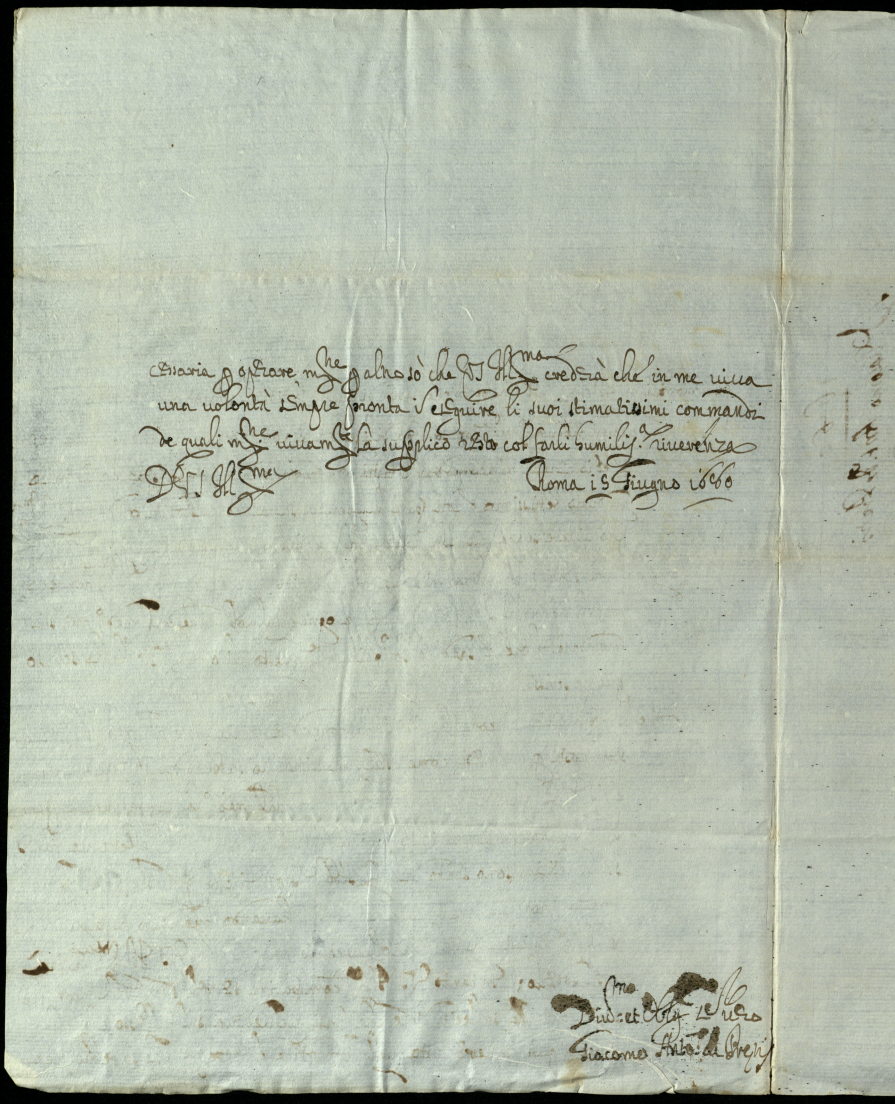 cessaria p operare m.ne p altro sò che VS Ill.ma crederà che in me viva
una volontà sempre pronta seguire li suoi stimatissimi commandi
de quali m.ne vivam.te la supplico resto col farli humilis.a riverenza
D VS Ill.ma Roma 15 Giugno 1660
Div.mo et Obl.
Giacomo Ant.o de